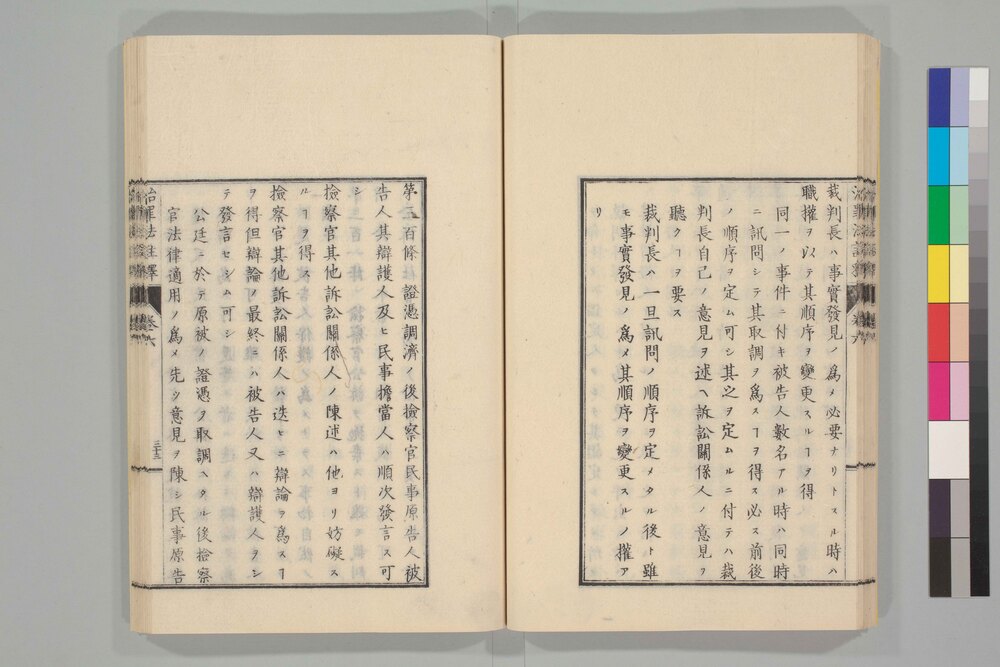 裁判長ハ事實發見ノ爲メ必要ナリトスル時ハ
職權ヲ以テ其順序ヲ變更スルヿヲ得
同一ノ事件ニ付キ被告人數名アル時ハ同時
ニ訊問シテ其取調ヲ爲スヿヲ得ス必ス前後
ノ順序ヲ定ム可シ其之ヲ定ムルニ付テハ裁
判長自己ノ意見ヲ述ヘ訴訟關係人ノ意見ヲ
聽クヿヲ要ス
裁判長ハ一旦訊問ノ順序ヲ定メタル後ト雖
モ事實發見ノ爲メ其順序ヲ變更スルノ權ア
リ
第三百條 證憑調濟ノ後撿察官民事原告人被
告人其辯護人及ヒ民事擔當人ハ順次發言ス可
シ
撿察官其他訴訟關係人ノ陳述ハ他ヨリ妨礙ス
ルヿヲ得ス
撿察官其他訴訟關係人ハ迭ヒニ辯論ヲ爲スヿ
ヲ得但辯論ノ最終ニハ被告人又ハ辯護人ヲシ
テ發言セシム可シ
公廷ニ於テ原被ノ證憑ヲ取調ヘタル後撿察
官法律適用ノ爲メ先ツ意見ヲ陳シ民事原告
治罪法註釋 卷六 三十三